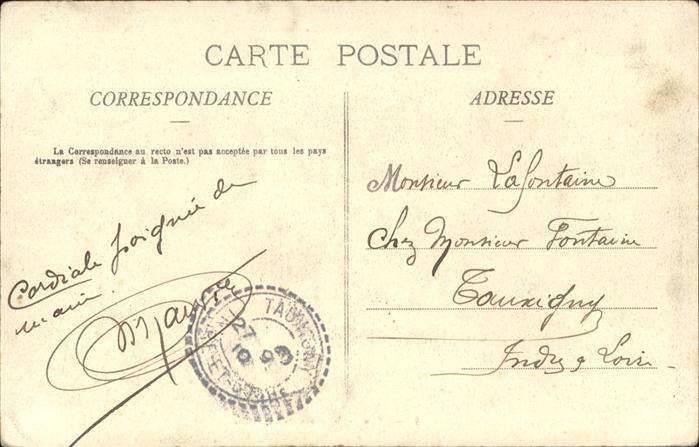 CARTE POSTALE
CORRESPONDANCE
La Correspondance au recto n'est pas acceptée par tous les pays
étrangers (Se renseigner à la Poste.)
Cordiale poignée de
main
ADRESSE
Monsieur Lafontaine
Chez Monsieur Fontaine
Tauxigny
Indre & Loire
27
10